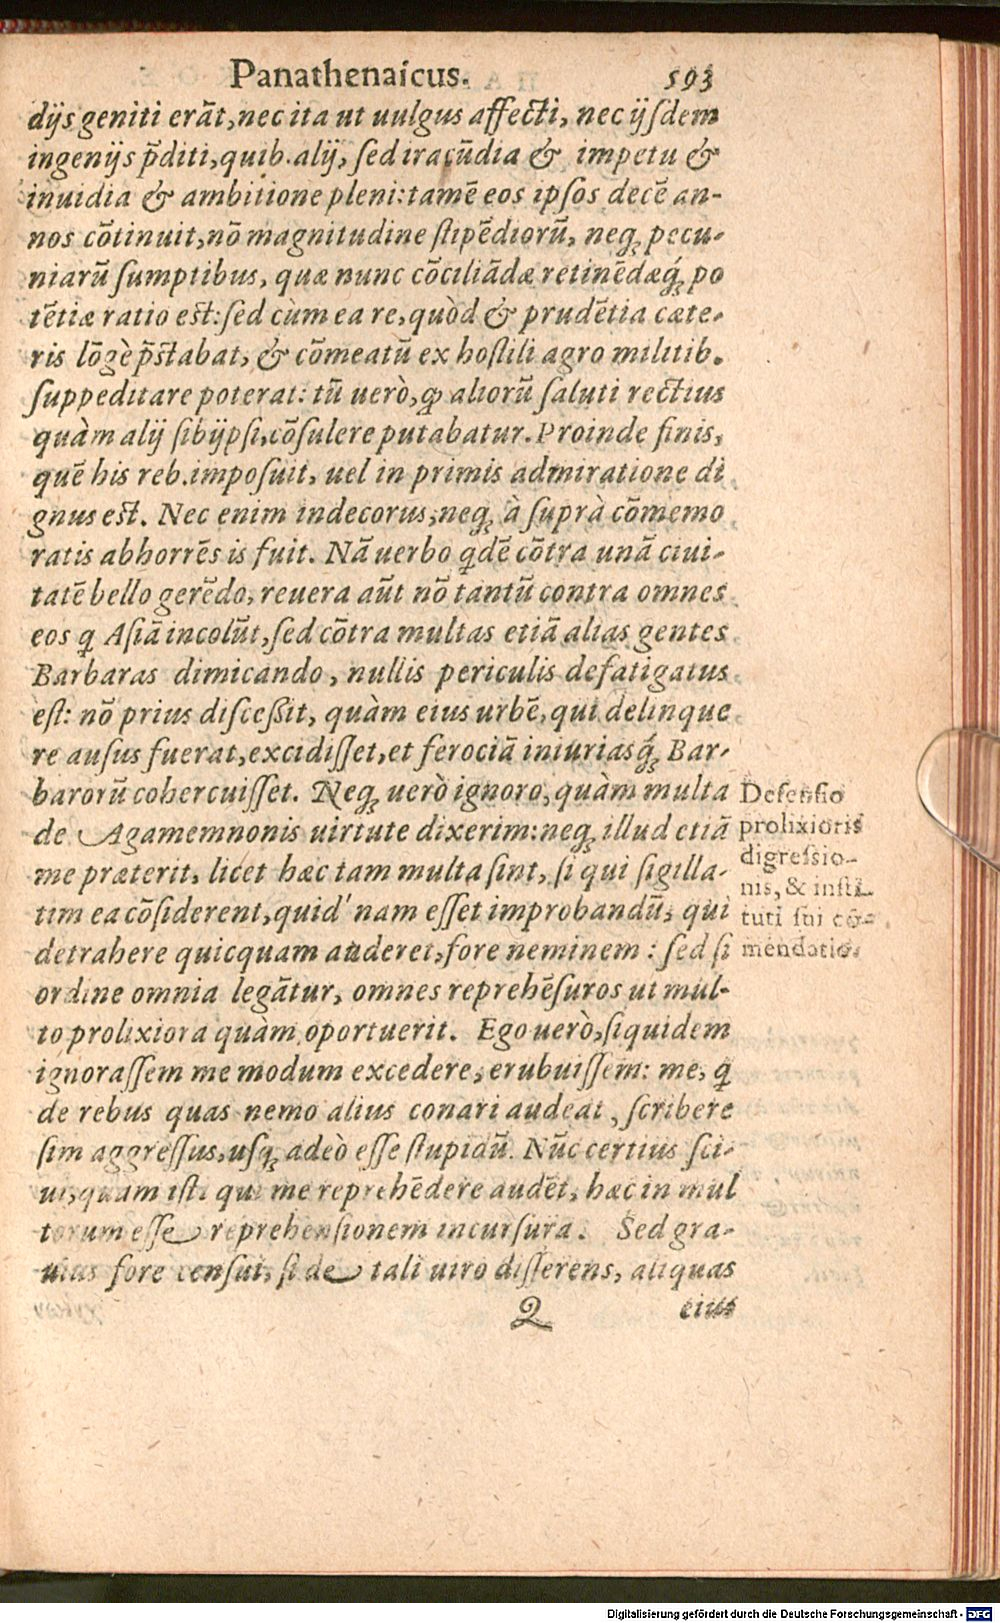 Panathenaicus. 593
dijs geniti erāt, nec ita ut uulgus affecti, nec ijsdem
ingenijs p̄diti, quib. alij, sed iracūdia & impetu &
inuidia & ambitione pleni: tamē eos ipsos decē an-
nos cōtinuit, nō magnitudine stipēdiorū, neq; pecu-
niarū sumptibus, quæ nunc cōciliādæ retinēdæq́; po
tētiæ ratio est: sed cùm ea re, quòd & prudētia cæte-
ris lōgè p̄stabat, & cōmeatū ex hostili agro militib.
suppeditare poterat: tū uerò, ꝙ aliorū saluti rectius
quàm alij sibijpsi, cōsulere putabatur. Proinde finis,
quē his reb. imposuit, uel in primis admiratione di
gnus est. Nec enim indecorus, neq; à suprà cōmemo
ratis abhorrēs is fuit. Nā uerbo qdē cōtra unā ciui-
tatē bello gerēdo, reuera aūt nō tantū contra omnes
eos q Asiā incolūt, sed cōtra multas etiā alias gentes
Barbaras dimicando, nullis periculis defatigatus
est: nō prius discessit, quàm eius urbē, qui delinque
re ausus fuerat, excidisset, et ferociā iniuriasq́; Bar-
barorū cohercuisset. Neq; uerò ignoro, quàm multa
de Agamemnonis uirtute dixerim: neq; illud etiā
me præterit, licet hæc tam multa sint, si qui sigilla-
tim ea cōsiderent, quid nam esset improbandū, qui
detrahere quicquam auderet, fore neminem: sed si
ordine omnia legātur, omnes reprehēsuros ut mul-
to prolixiora quàm oportuerit. Ego uerò, siquidem
ignorassem me modum excedere, erubuissem: me, q
de rebus quas nemo alius conari audeat, scribere
sim aggressus, usq; adeò esse stupidū. Nūc certius sci-
ui, quam isti qui me reprehēdere audēt, hæc in mul
torum esse reprehensionem incursura. Sed gra-
uius fore censui, si de tali uiro disserens, aliquas
Q eius
Defensio
prolixioris
digressio-
nis, & insti-
tuti sui cō-
mendatio.
Digitalisierung gefördert durch die Deutsche Forschungsgemeinschaft - DFG